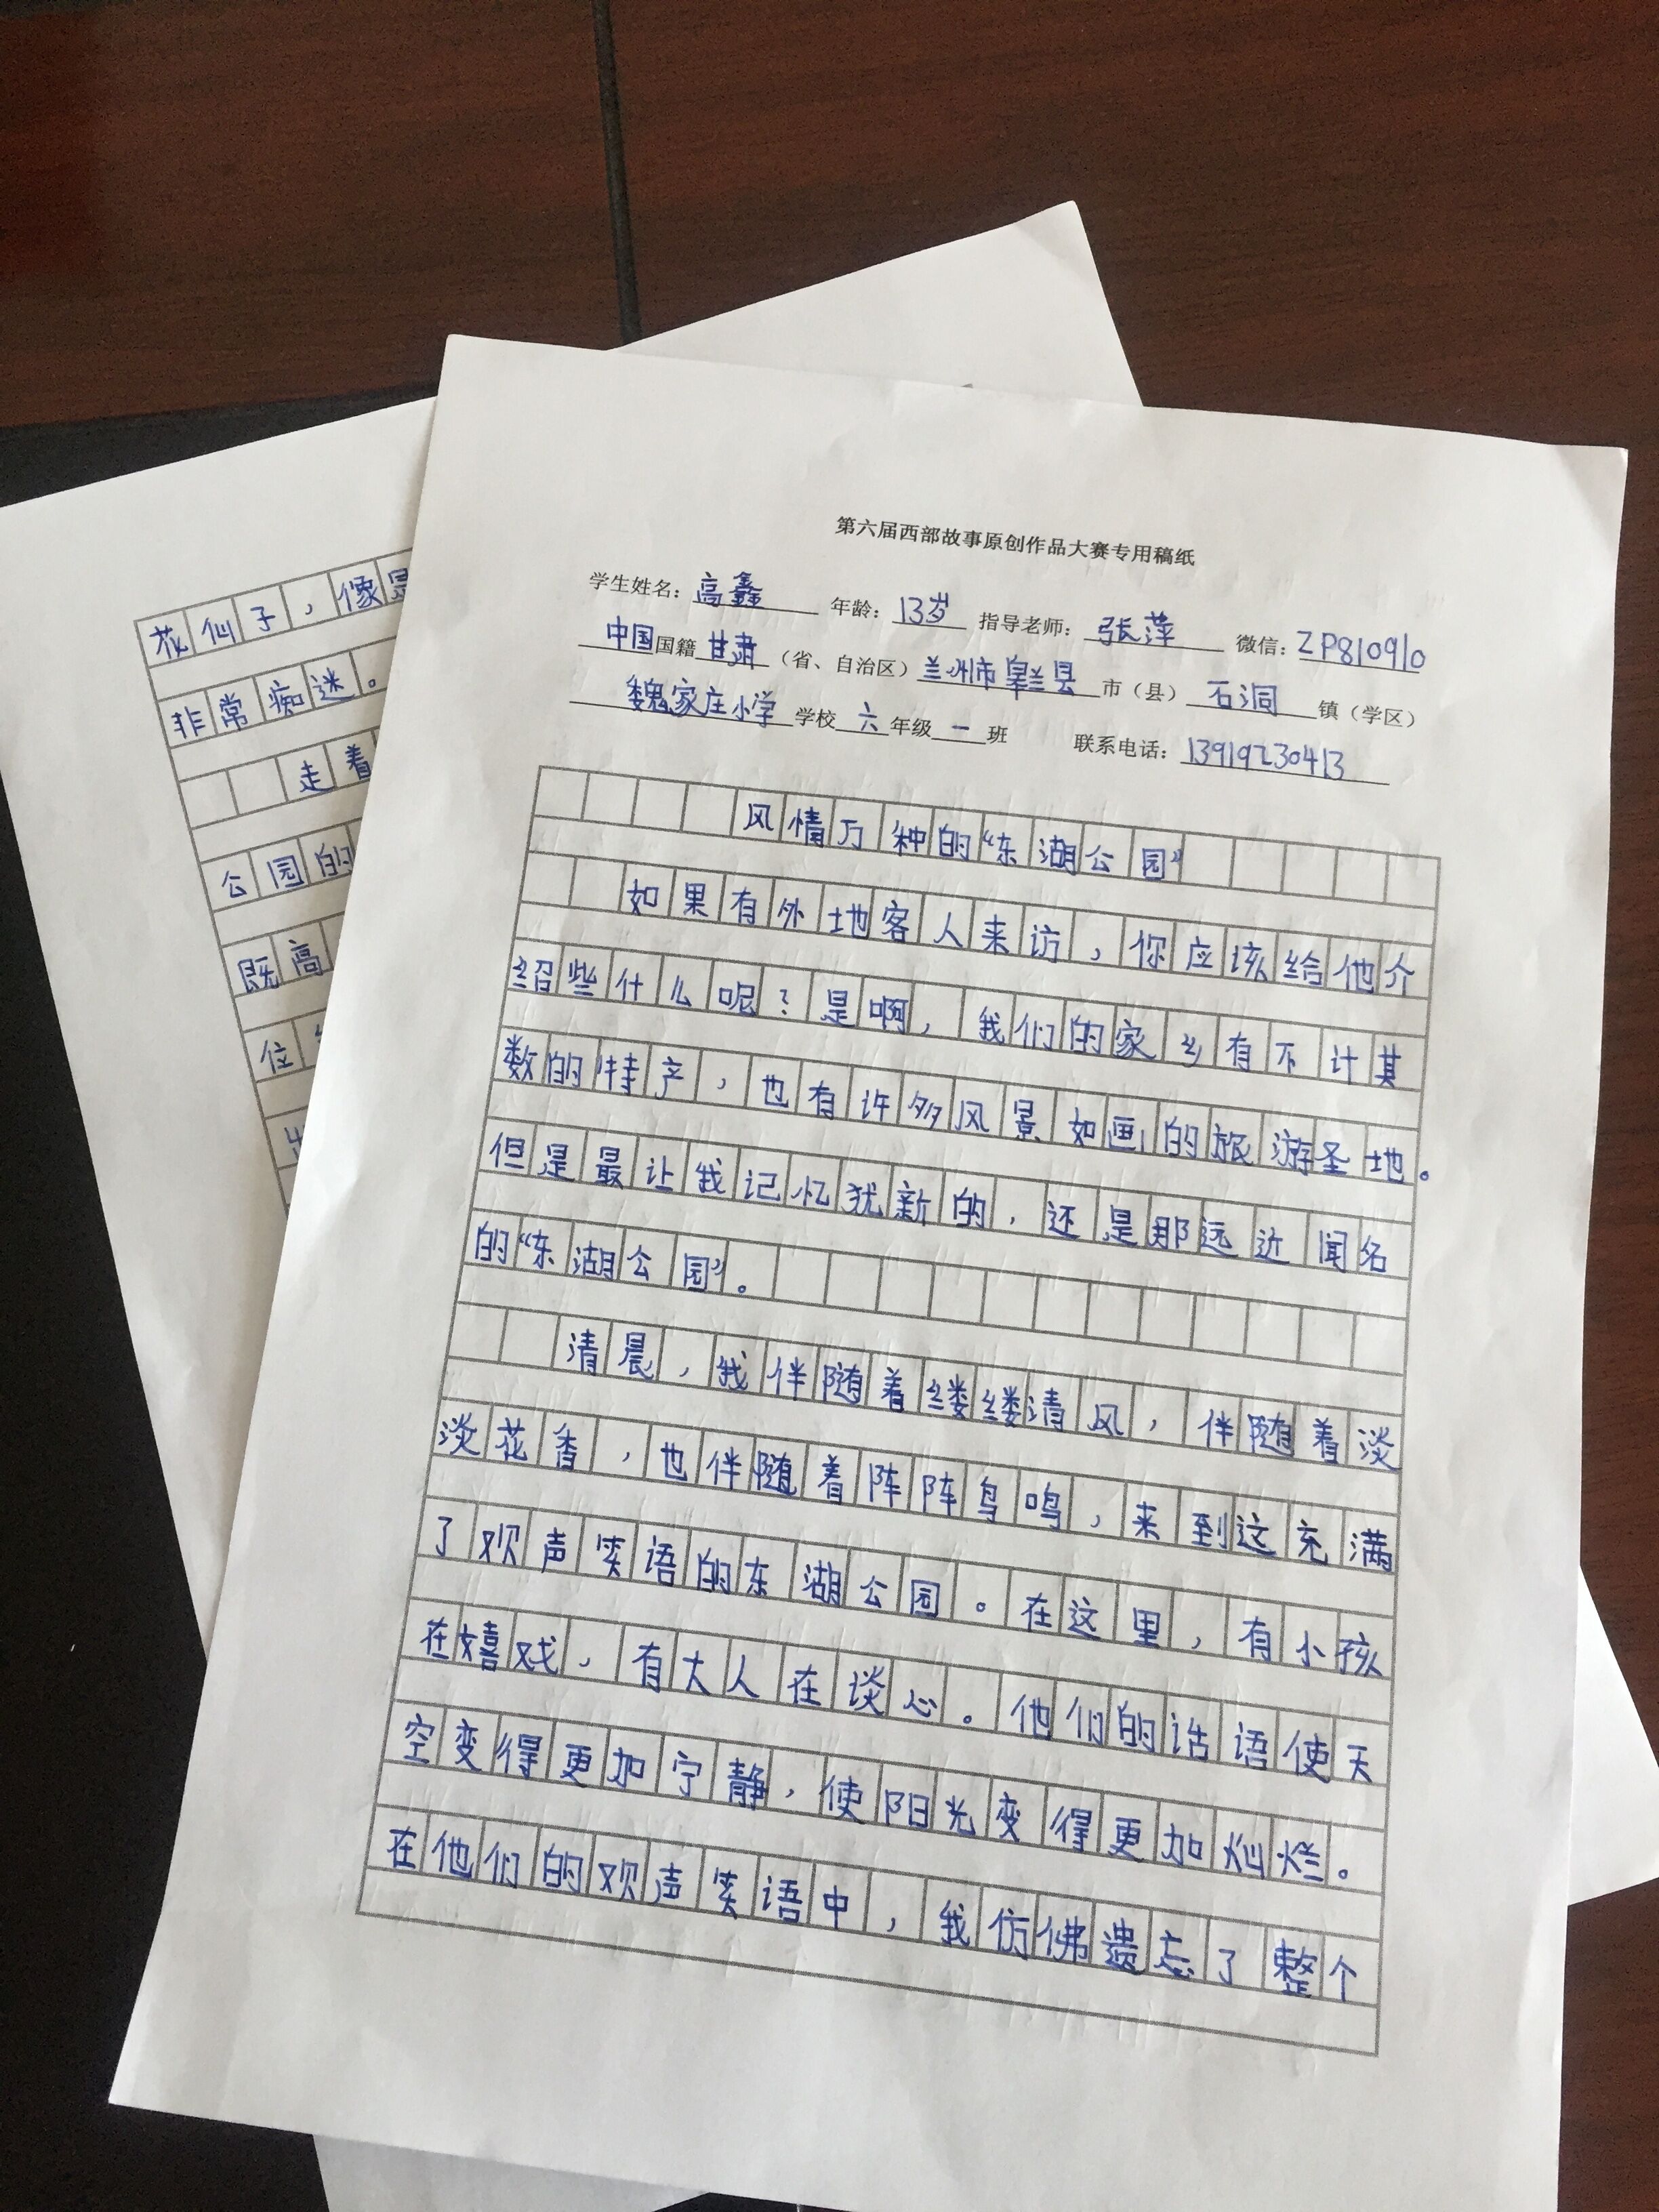 第六届西部故事原创作品大赛专用稿纸
学生姓名：高鑫 年龄：13岁 指导老师：张萍 微信：ZP810910
中国国籍甘肃（省、自治区）兰州市皋兰县市（县）石洞镇（学区）
魏家庄小学学校六年级一班 联系电话：13919230413
风情万种的“东湖公园”
如果有外地客人来访，你应该给他介
绍些什么呢？是啊，我们的家乡有不计其
数的特产，也有许多风景如画的旅游圣地。
但是最让我记忆犹新的，还是那远近闻名
的“东湖公园”。
清晨，我伴随着缕缕清风，伴随着淡
淡花香，也伴随着阵阵鸟鸣，来到这充满
了欢声笑语的东湖公园。在这里，有小孩
在嬉戏，有大人在谈心。他们的话语使天
空变得更加宁静，使阳光变得更加灿烂。
在他们的欢声笑语中，我仿佛遗忘了整个
花仙子，像是
非常痴迷。
走着
公园的
既高
位